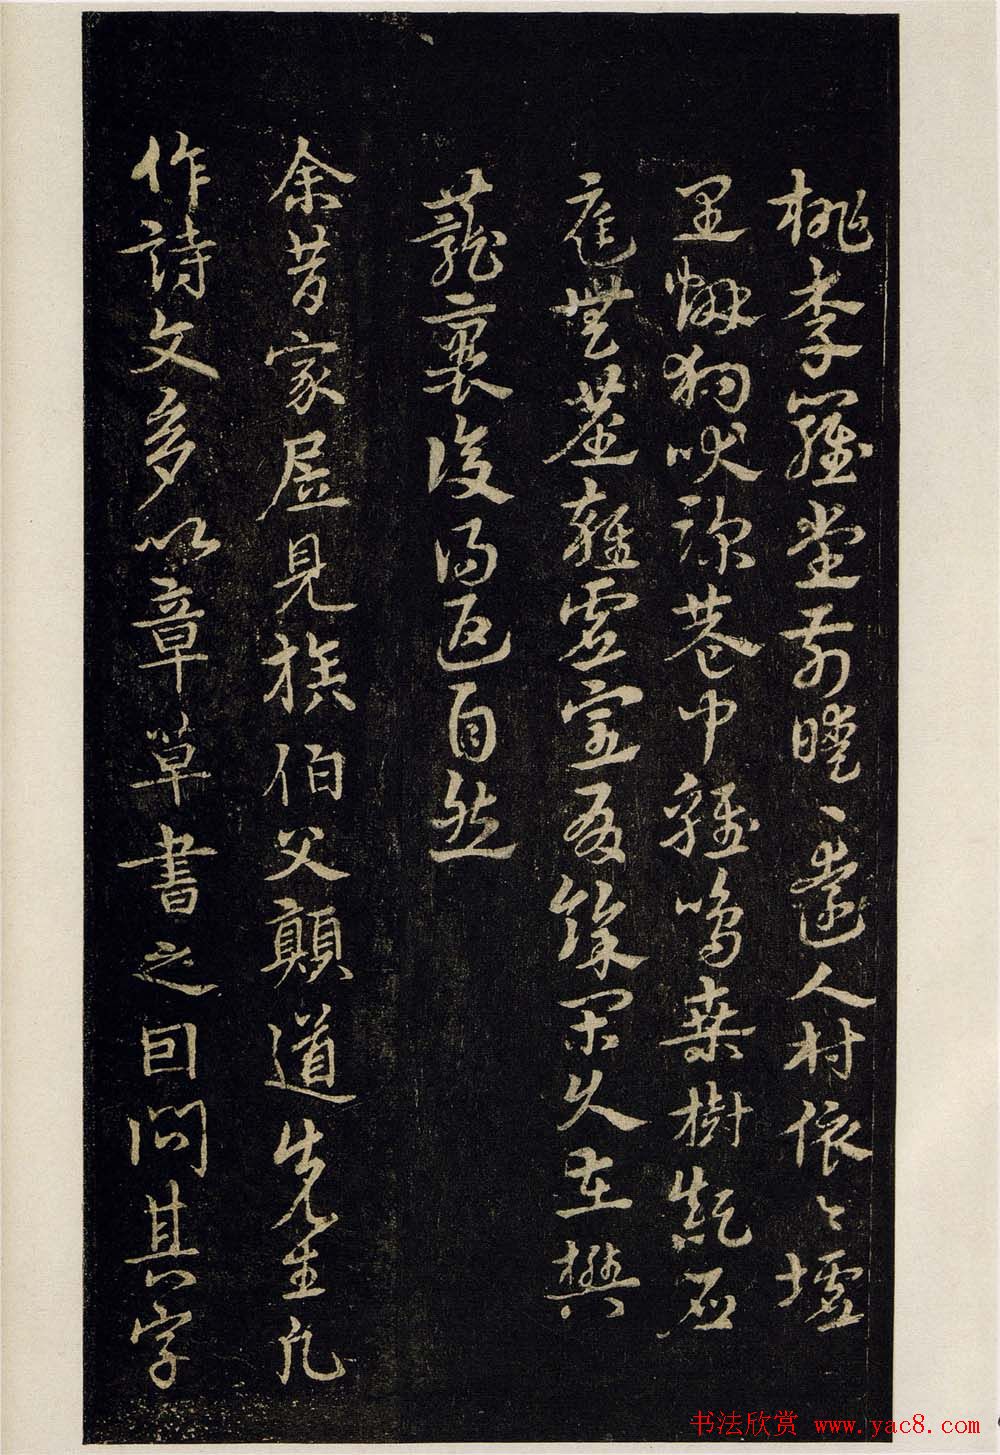 桃李羅堂前曖〻遠人村依〻墟
里煙狗吠深巷中雞鳴桑樹顛戶
庭無塵雜虛室有餘閑久在樊
籠裏復得返自然
余昔家居見族伯父顛道先生凡
作詩文多以章草書之因問其字
书法欣赏 www.yac8.com